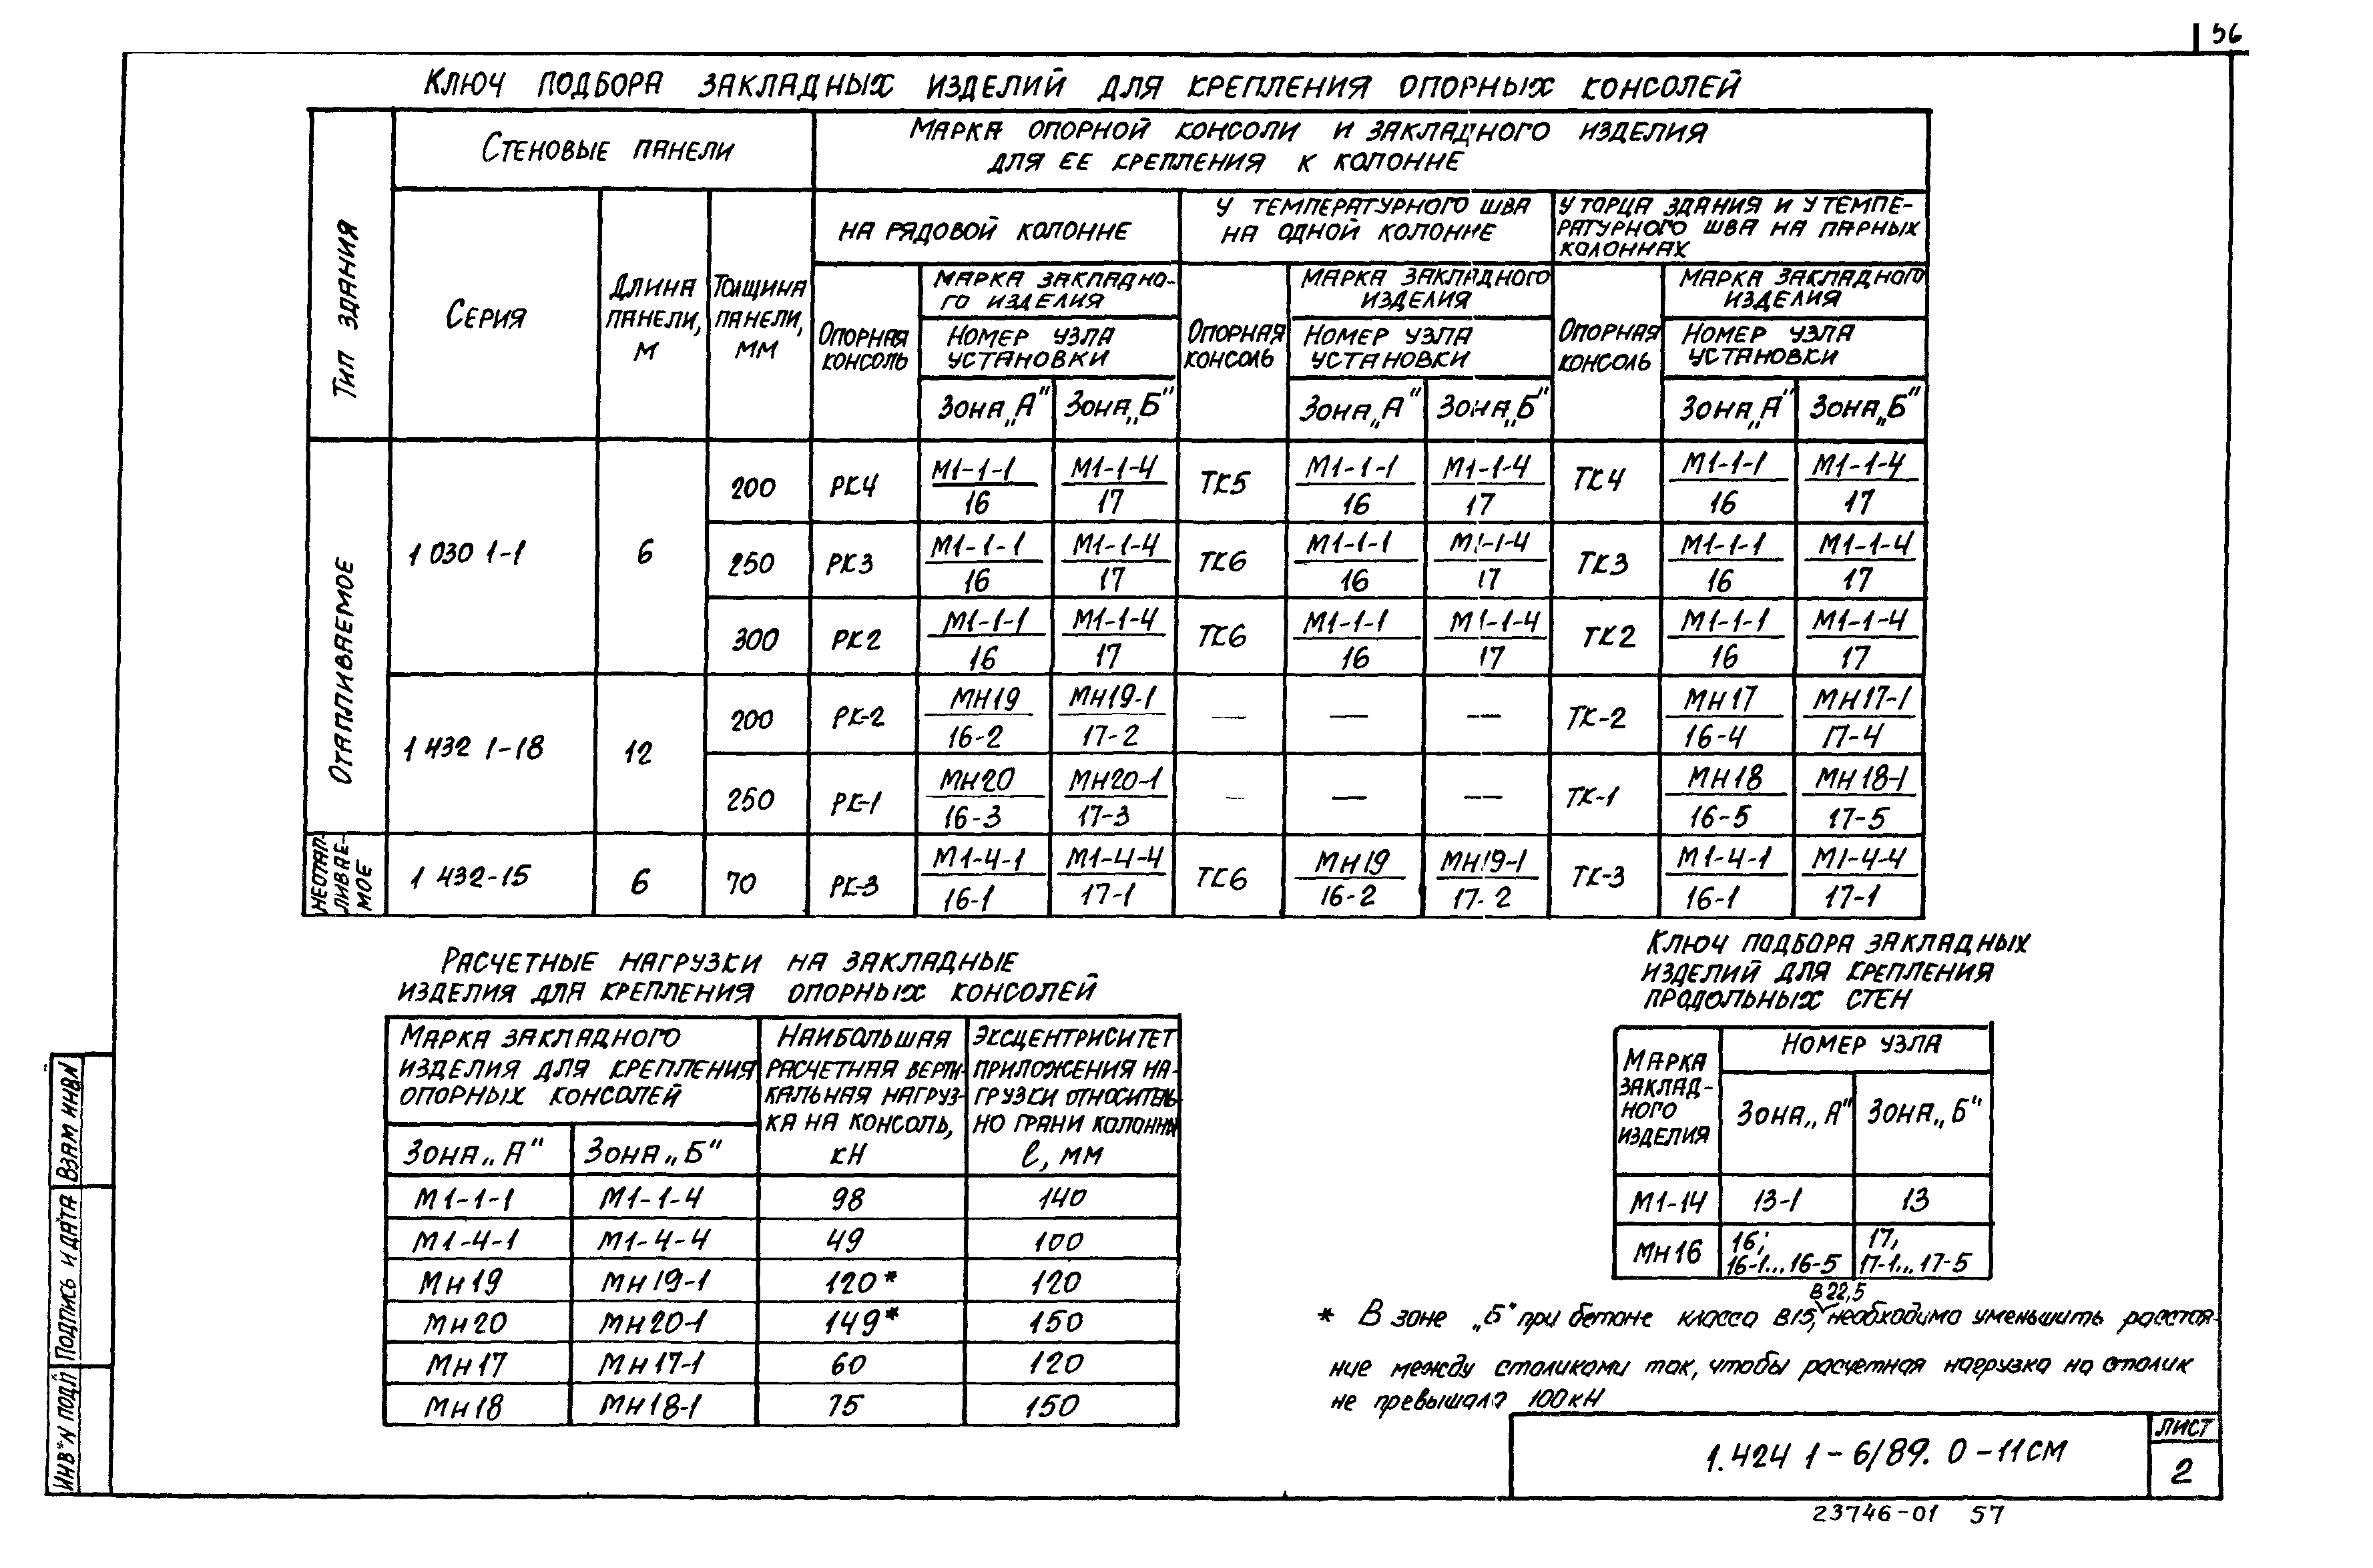 56
Ключ подбора закладных изделий для крепления опорных консолей
Тип здания
Стеновые панели
Марка опорной консоли и закладного изделия
для ее крепления к колонне
Серия
Длина
панели,
м
Толщина
панели,
мм
на рядовой колонне
у температурного шва
на одной колонне
у торца здания и у темпе-
ратурного шва на парных
колоннах
Опорная
консоль
марка закладно-
го изделия
Номер узла
установки
Зона „А"
Зона „Б"
Опорная
консоль
марка закладного
изделия
Номер узла
установки
Зона „А"
Зона „Б"
Опорная
консоль
марка закладного
изделия
Номер узла
установки
Зона „А"
Зона „Б"
Отапливаемое
1 030 1-1
6
200 РК4 М1-1-1 М1-1-4 ТК5 М1-1-1 М1-1-4 ТК4 М1-1-1 М1-1-4
16 17 16 17 16 17
250 РК3 М1-1-1 М1-1-4 ТК6 М1-1-1 М1-1-4 ТК3 М1-1-1 М1-1-4
16 17 16 17 16 17
300 РК2 М1-1-1 М1-1-4 ТК6 М1-1-1 М1-1-4 ТК2 М1-1-1 М1-1-4
16 17 16 17 16 17
1 432 1-18
12
200 РК-2 МН19 МН19-1 — — — ТК-2 МН17 МН17-1
16-2 17-2 16-4 17-4
250 РК-1 МН20 МН20-1 — — — ТК-1 МН18 МН18-1
16-3 17-3 16-5 17-5
Неотап-
ливае-
мое
1 432-15 6 70 РК-3 М1-4-1 М1-4-4 ТК6 МН19 МН19-1 ТК-3 М1-4-1 М1-4-4
16-1 17-1 16-2 17-2 16-1 17-1
Расчетные нагрузки на закладные
изделия для крепления опорных консолей
Марка закладного
изделия для крепления
опорных консолей
Зона „А"
Зона „Б"
Наибольшая
расчетная верти-
кальная нагруз-
ка на консоль,
кН
Эксцентриситет
приложения на-
грузки относитель-
но грани колонны
ℓ, мм
М1-1-1 М1-1-4 98 140
М1-4-1 М1-4-4 49 100
Мн19 Мн19-1 120* 120
Мн20 Мн20-1 149* 150
Мн17 Мн17-1 60 120
Мн18 Мн18-1 75 150
Ключ подбора закладных
изделий для крепления
продольных стен
Марка
заклад-
ного
изделия
Номер узла
Зона „А"
Зона „Б"
М1-14 13-1 13
Мн16 16; 17,
16-1...16-5 17-1...17-5
В22,5
* В зоне „Б" при бетоне класса В15, необходимо уменьшить расстоя-
ние между столиками так, чтобы расчетная нагрузка на столик
не превышала 100кН
1.424 1-6/89. 0-11СМ
Лист
2
23746-01 57
Взам инв N
Подпись и дата
Инв N подл